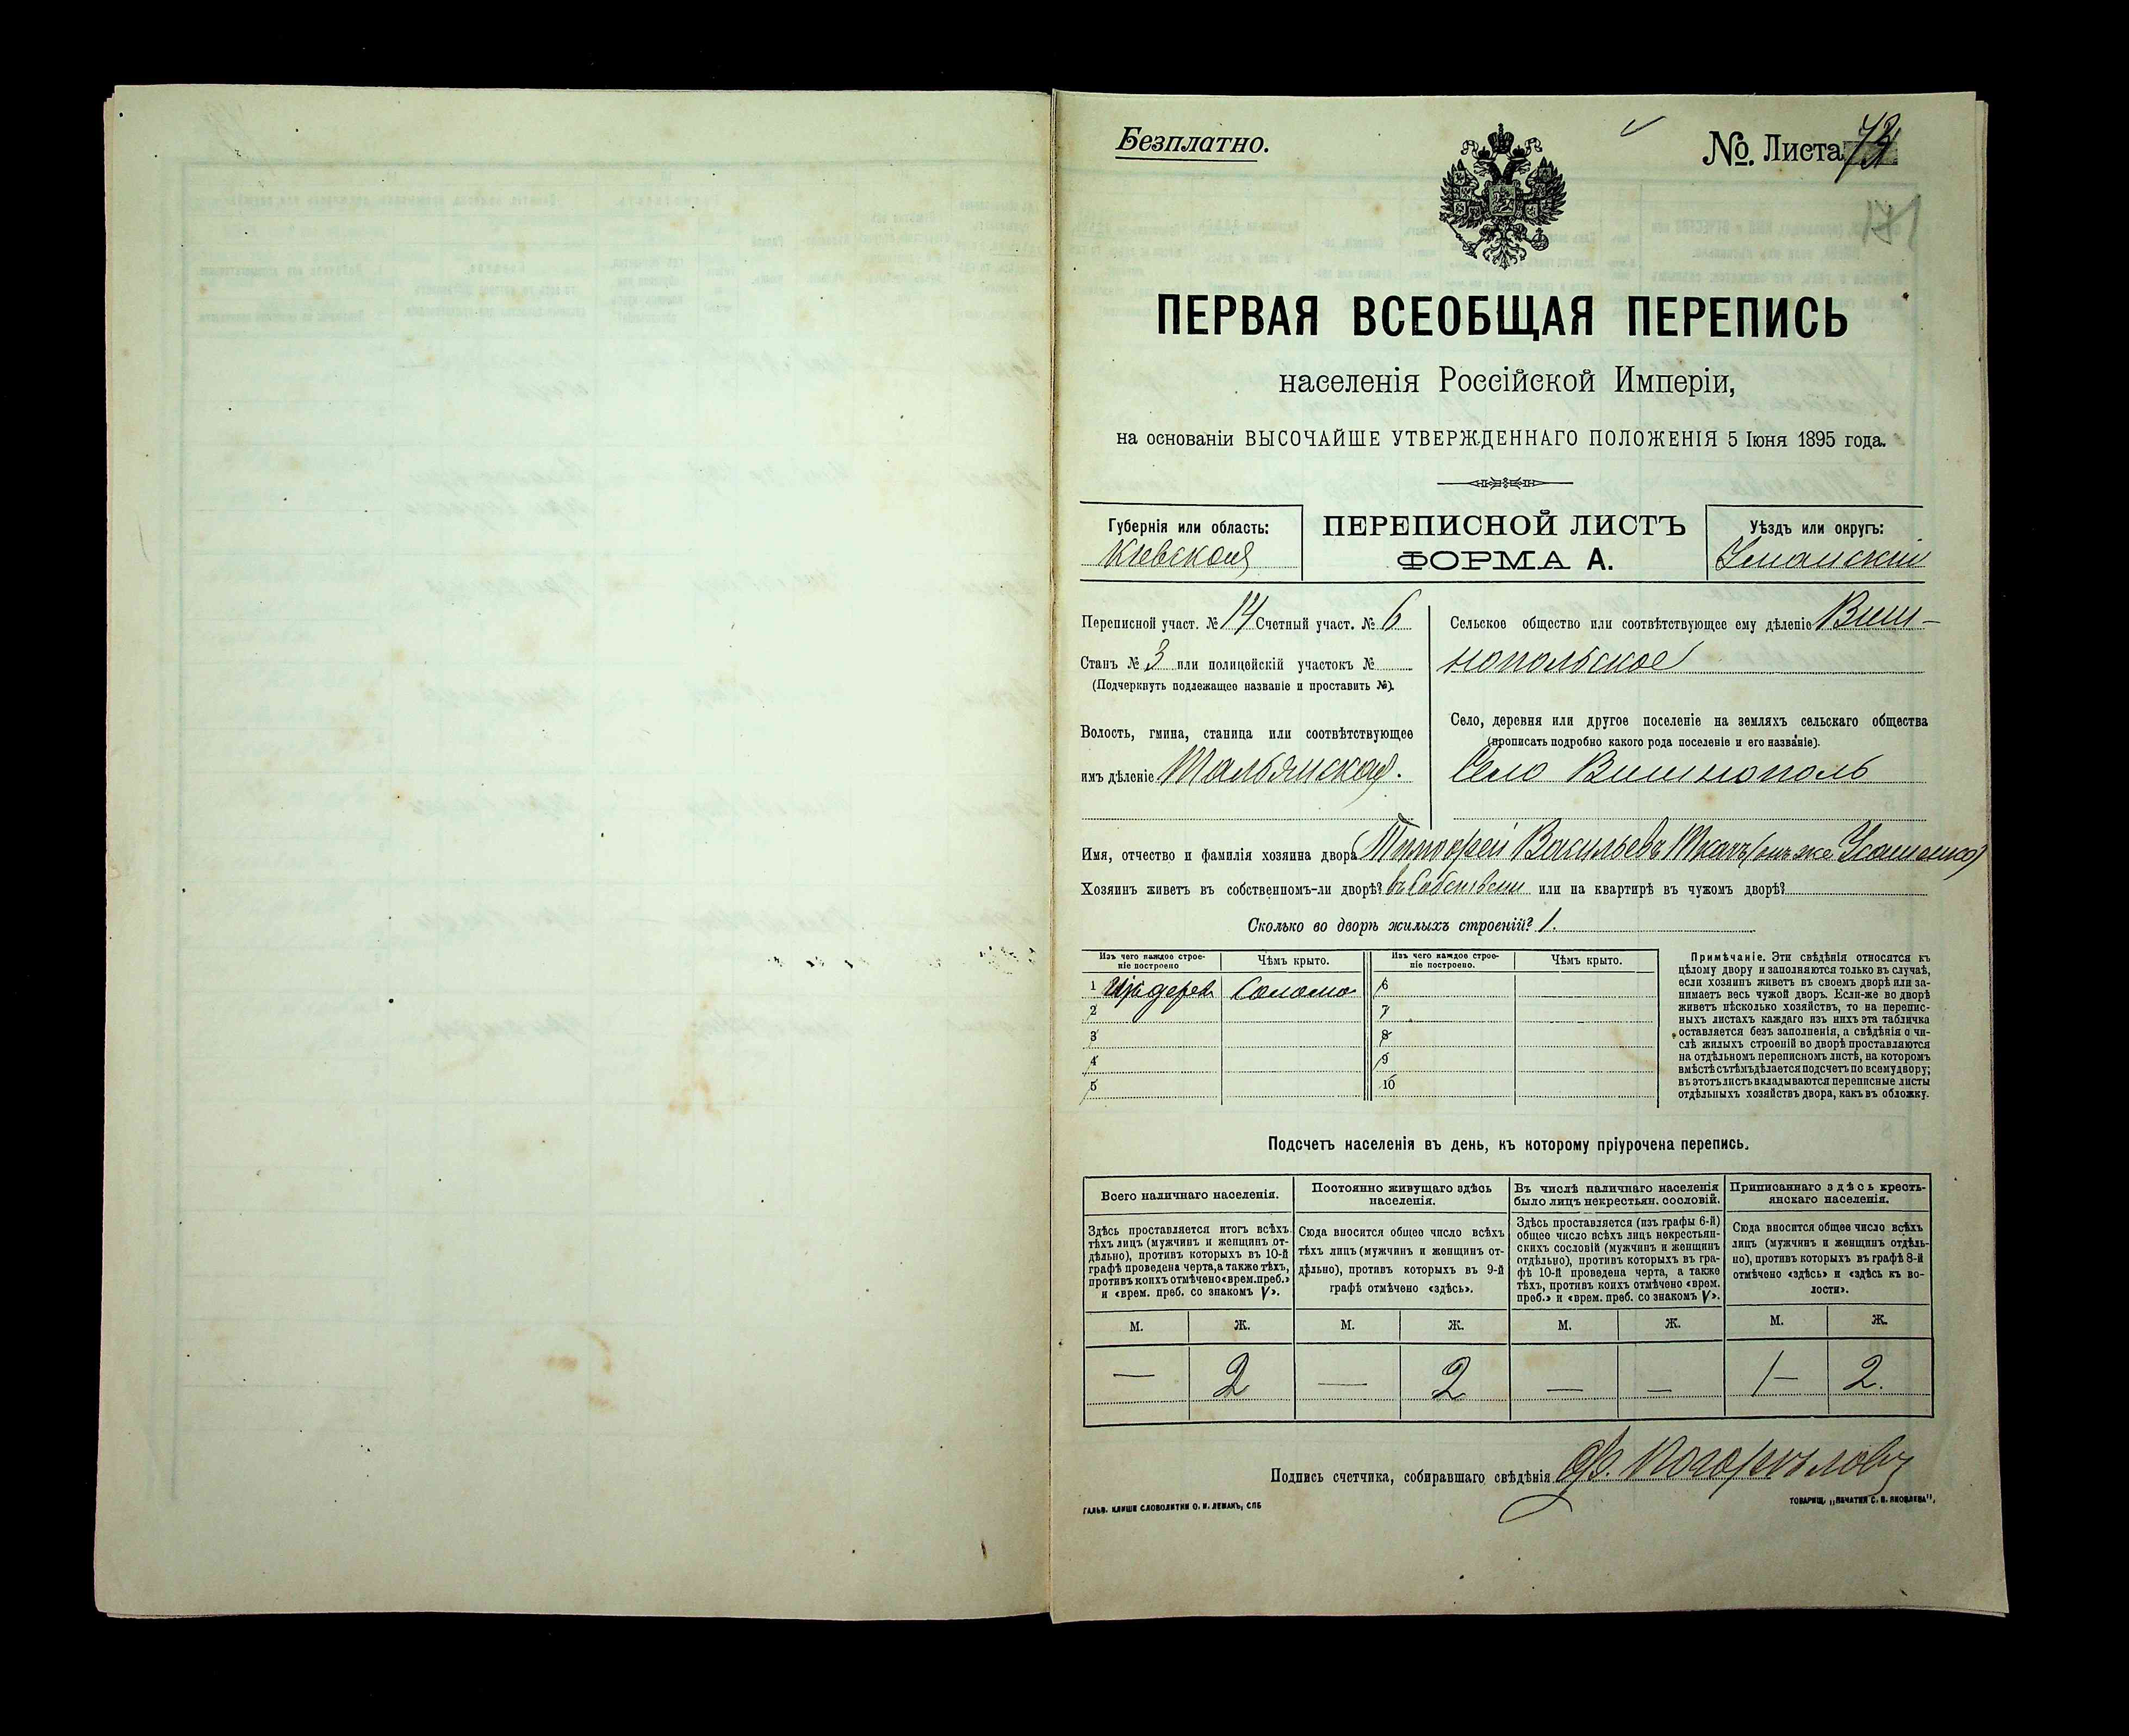 Безплатно.
№. Листа
171
ПЕРВАЯ ВСЕОБЩАЯ ПЕРЕПИСЬ
населенія Россійской Имперіи,
на основаніи ВЫСОЧАЙШЕ УТВЕРЖДЕННАГО ПОЛОЖЕНІЯ 5 Іюня 1895 года.
Губернія или область:
Кіевская
ПЕРЕПИСНОЙ ЛИСТЪ
ФОРМА А.
Уѣздъ или округъ:
Уманскій
Переписной участ. № 14 Счетный участ. № 6
Станъ № 3 или полицейскій участокъ №
(Подчеркнуть подлежащее названіе и проставить №).
Волость, гмина, станица или соотвѣтствующее
имъ дѣленіе Тальянская.
Сельское общество или соотвѣтствующее ему дѣленіе Виш-
нопольское
Село, деревня или другое поселеніе на земляхъ сельскаго общества
(прописать подробно какого рода поселеніе и его названіе).
Село Вишнополь
Имя, отчество и фамилія хозяина двора Тимофей Васильевъ Ткачъ (онъ же
Хозяинъ живетъ въ собственномъ-ли дворѣ? въ Собствен или на квартирѣ въ чужомъ дворѣ?
Сколько во дворѣ жилыхъ строеній? 1.
Изъ чего каждое строе-
ніе построено
Чѣмъ крыто.
Изъ чего каждое строе-
ніе построено.
Чѣмъ крыто.
1 Изъ дерев Солома
2
3
4
5
6
7
8
9
10
Примѣчаніе. Эти свѣдѣнія относятся къ
цѣлому двору и заполняются только въ случаѣ,
если хозяинъ живетъ въ своемъ дворѣ или за-
нимаетъ весь чужой дворъ. Если-же во дворѣ
живетъ нѣсколько хозяйствъ, то на перепис-
ныхъ листахъ каждаго изъ нихъ эта табличка
оставляется безъ заполненія, а свѣдѣнія о чи-
слѣ жилыхъ строеній во дворѣ проставляются
на отдѣльномъ переписномъ листѣ, на которомъ
вмѣстѣ съ тѣмъ дѣлается подсчетъ по всему двору;
въ этотъ листъ вкладываются переписные листы
отдѣльныхъ хозяйствъ двора, какъ въ обложку.
Подсчетъ населенія въ день, къ которому пріурочена перепись.
Всего наличнаго населенія.
Здѣсь проставляется итогъ всѣхъ
тѣхъ лицъ (мужчинъ и женщинъ от-
дѣльно), противъ которыхъ въ 10-й
графѣ проведена черта, а также тѣхъ,
противъ коихъ отмѣчено «врем. преб.»
и «врем. преб. со знакомъ V».
Постоянно живущаго здѣсь
населенія.
Сюда вносится общее число всѣхъ
тѣхъ лицъ (мужчинъ и женщинъ от-
дѣльно), противъ которыхъ въ 9-й
графѣ отмѣчено «здѣсь».
Въ числѣ наличнаго населенія
было лицъ некрестьян. сословій.
Здѣсь проставляется (изъ графы 6-й)
общее число всѣхъ лицъ некрестьян-
скихъ сословій (мужчинъ и женщинъ
отдѣльно), противъ которыхъ въ гра-
фѣ 10-й проведена черта, а также
тѣхъ, противъ коихъ отмѣчено «врем.
преб.» и «врем. преб. со знакомъ V».
Приписаннаго здѣсь кресть-
янскаго населенія.
Сюда вносится общее число всѣхъ
лицъ (мужчинъ и женщинъ отдѣль-
но), противъ которыхъ въ графѣ 8-й
отмѣчено «здѣсь» и «здѣсь къ во-
лости».
М. Ж. М. Ж. М. Ж. М. Ж.
— 2 — 2 — — 1 — 2.
Подпись счетчика, собиравшаго свѣдѣнія Ф. Погорѣловъ
ГАЛЬВ. КЛИШЕ СЛОВОЛИТНИ О. И. ЛЕМАНЪ, СПБ
ТОВАРИЩ. „ПЕЧАТНЯ С. П. ЯКОВЛЕВА",